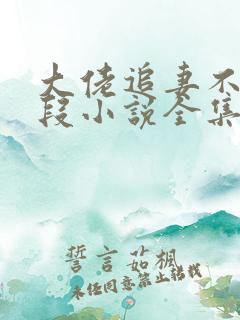 大佬追妻不
段小说全集
誓言茹楓
未任同意禁止转载